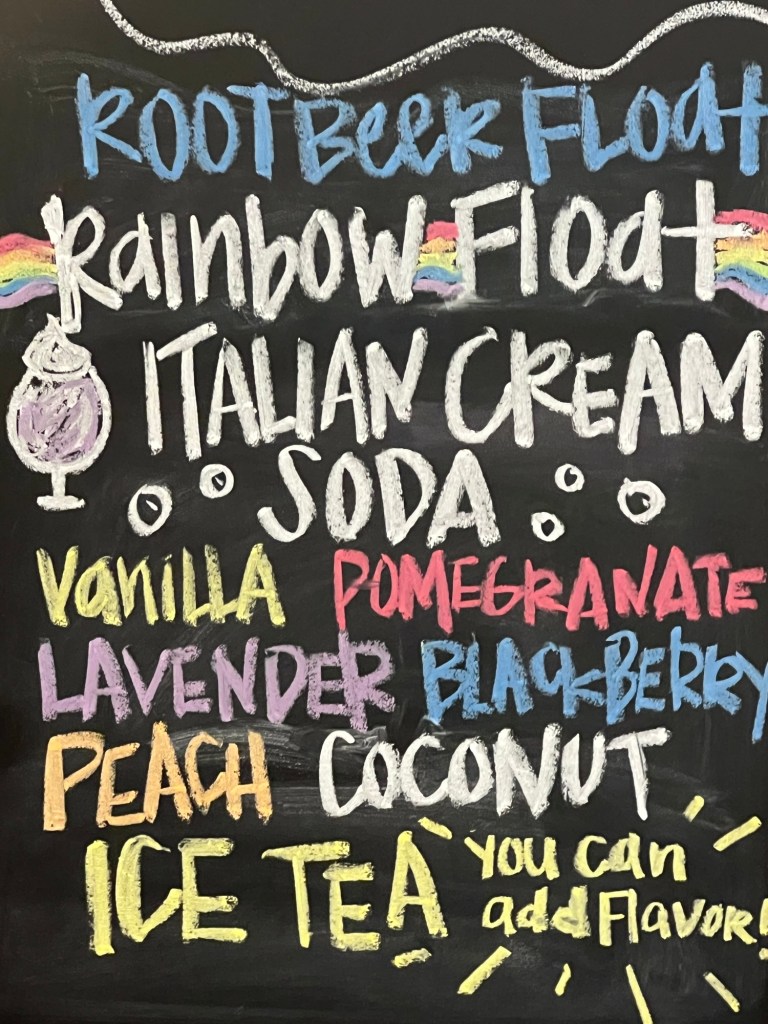 ROOT BEER FLOAT
Rainbow Float
ITALIAN CREAM
SODA
VANILLA POMEGRANATE
LAVENDER BLACKBERRY
PEACH COCONUT
ICE TEA You can
add Flavor!